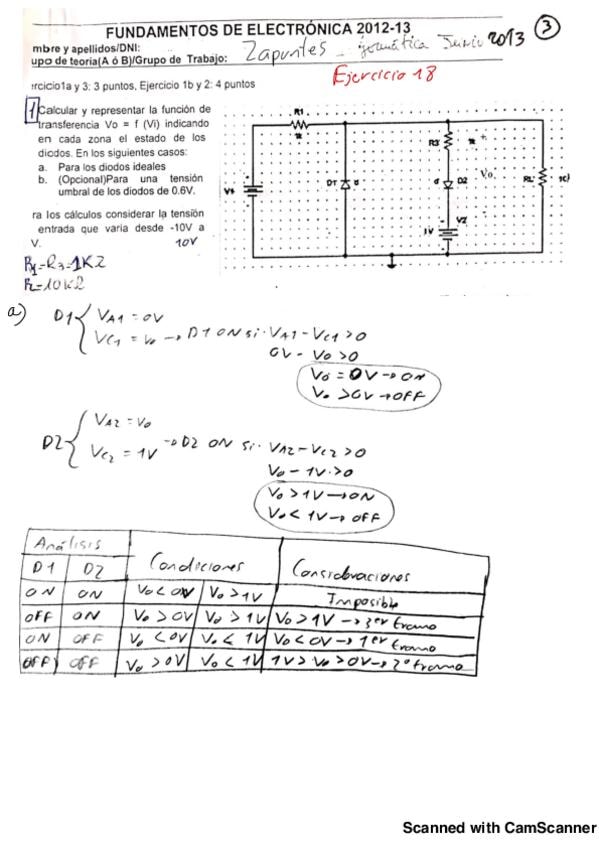 FUNDAMENTOS DE ELECTRÓNICA 2012-13
3
mbre y apellidos/DNI:
upo de teoría(A ó B)/Grupo de Trabajo: Zapuntes - Junio 2013
Ejercicio 18
ercicio1a y 3: 3 puntos, Ejercicio 1b y 2: 4 puntos
1 Calcular y representar la función de
transferencia Vo = f (Vi) indicando
en cada zona el estado de los
diodos. En los siguientes casos:
a. Para los diodos ideales
b. (Opcional)Para una tensión
umbral de los diodos de 0.6V.
ra los cálculos considerar la tensión
entrada que varia desde -10V a
V. 10V
R1=R3=1KΩ
R=10KΩ
R1
R3
D1 d
d D2
Vo
RL
V2
1V
a)
D1 { VA1 = 0V
VC1 = Vo → D1 ON si VA1 - VC1 > 0
0V - Vo > 0
Vo = 0V → ON
Vo > 0V → OFF
D2 { VA2 = Vo
VC2 = 1V → D2 ON si VA2 - VC2 > 0
Vo - 1V > 0
Vo > 1V → ON
Vo < 1V → OFF
Análisis
D1 D2 Condiciones Consideraciones
ON ON Vo < 0V Vo > 1V Imposible
OFF ON Vo > 0V Vo > 1V Vo > 1V → 3er tramo
ON OFF Vo < 0V Vo < 1V Vo < 0V → 1er tramo
OFF OFF Vo > 0V Vo < 1V 1V > Vo > 0V → 2º tramo
Scanned with CamScanner